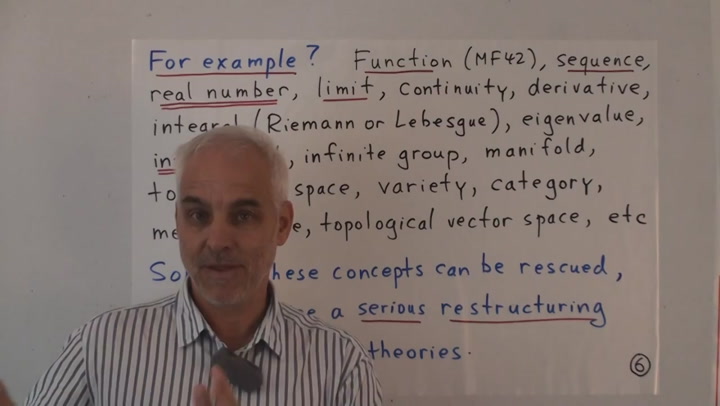 For example? Function (MF42), sequence,
real number, limit, continuity, derivative,
integral (Riemann or Lebesgue), eigenvalue,
infinite group, manifold,
space, variety, category,
topological vector space, etc
these concepts can be rescued,
a serious restructuring
theories.
6